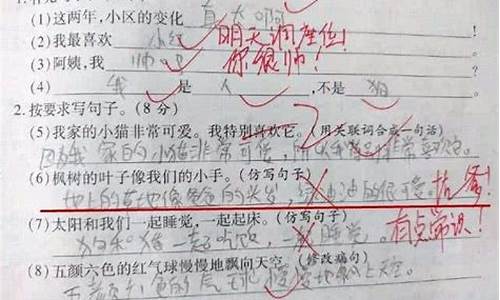 (1)这两年,小区的变化 真大啊
(2)我最喜欢 小红 明天调座位!
(3)阿姨,我 帅吗 你很帅!
(4) 我 是 人 ,不是 狗
2.按要求写句子。(8分)
(5)我家的小猫非常可爱。我特别喜欢它。(用关联词合成一句话)
因为我家的小猫非常可爱,所以我特别非常喜欢它。
(6)枫树的叶子像我们的小手。(仿写句子)
地上的草地像爸爸的头发,绿油油的很可爱。
(7)太阳和我们一起睡觉,一起起床。(仿写句子)
狗和猪一起吃饭,一起睡觉。 有点常识!
(8)五颜六色的红气球慢慢地飘向天空。(修改病句)
五颜六色的气球慢慢地飘上天空。